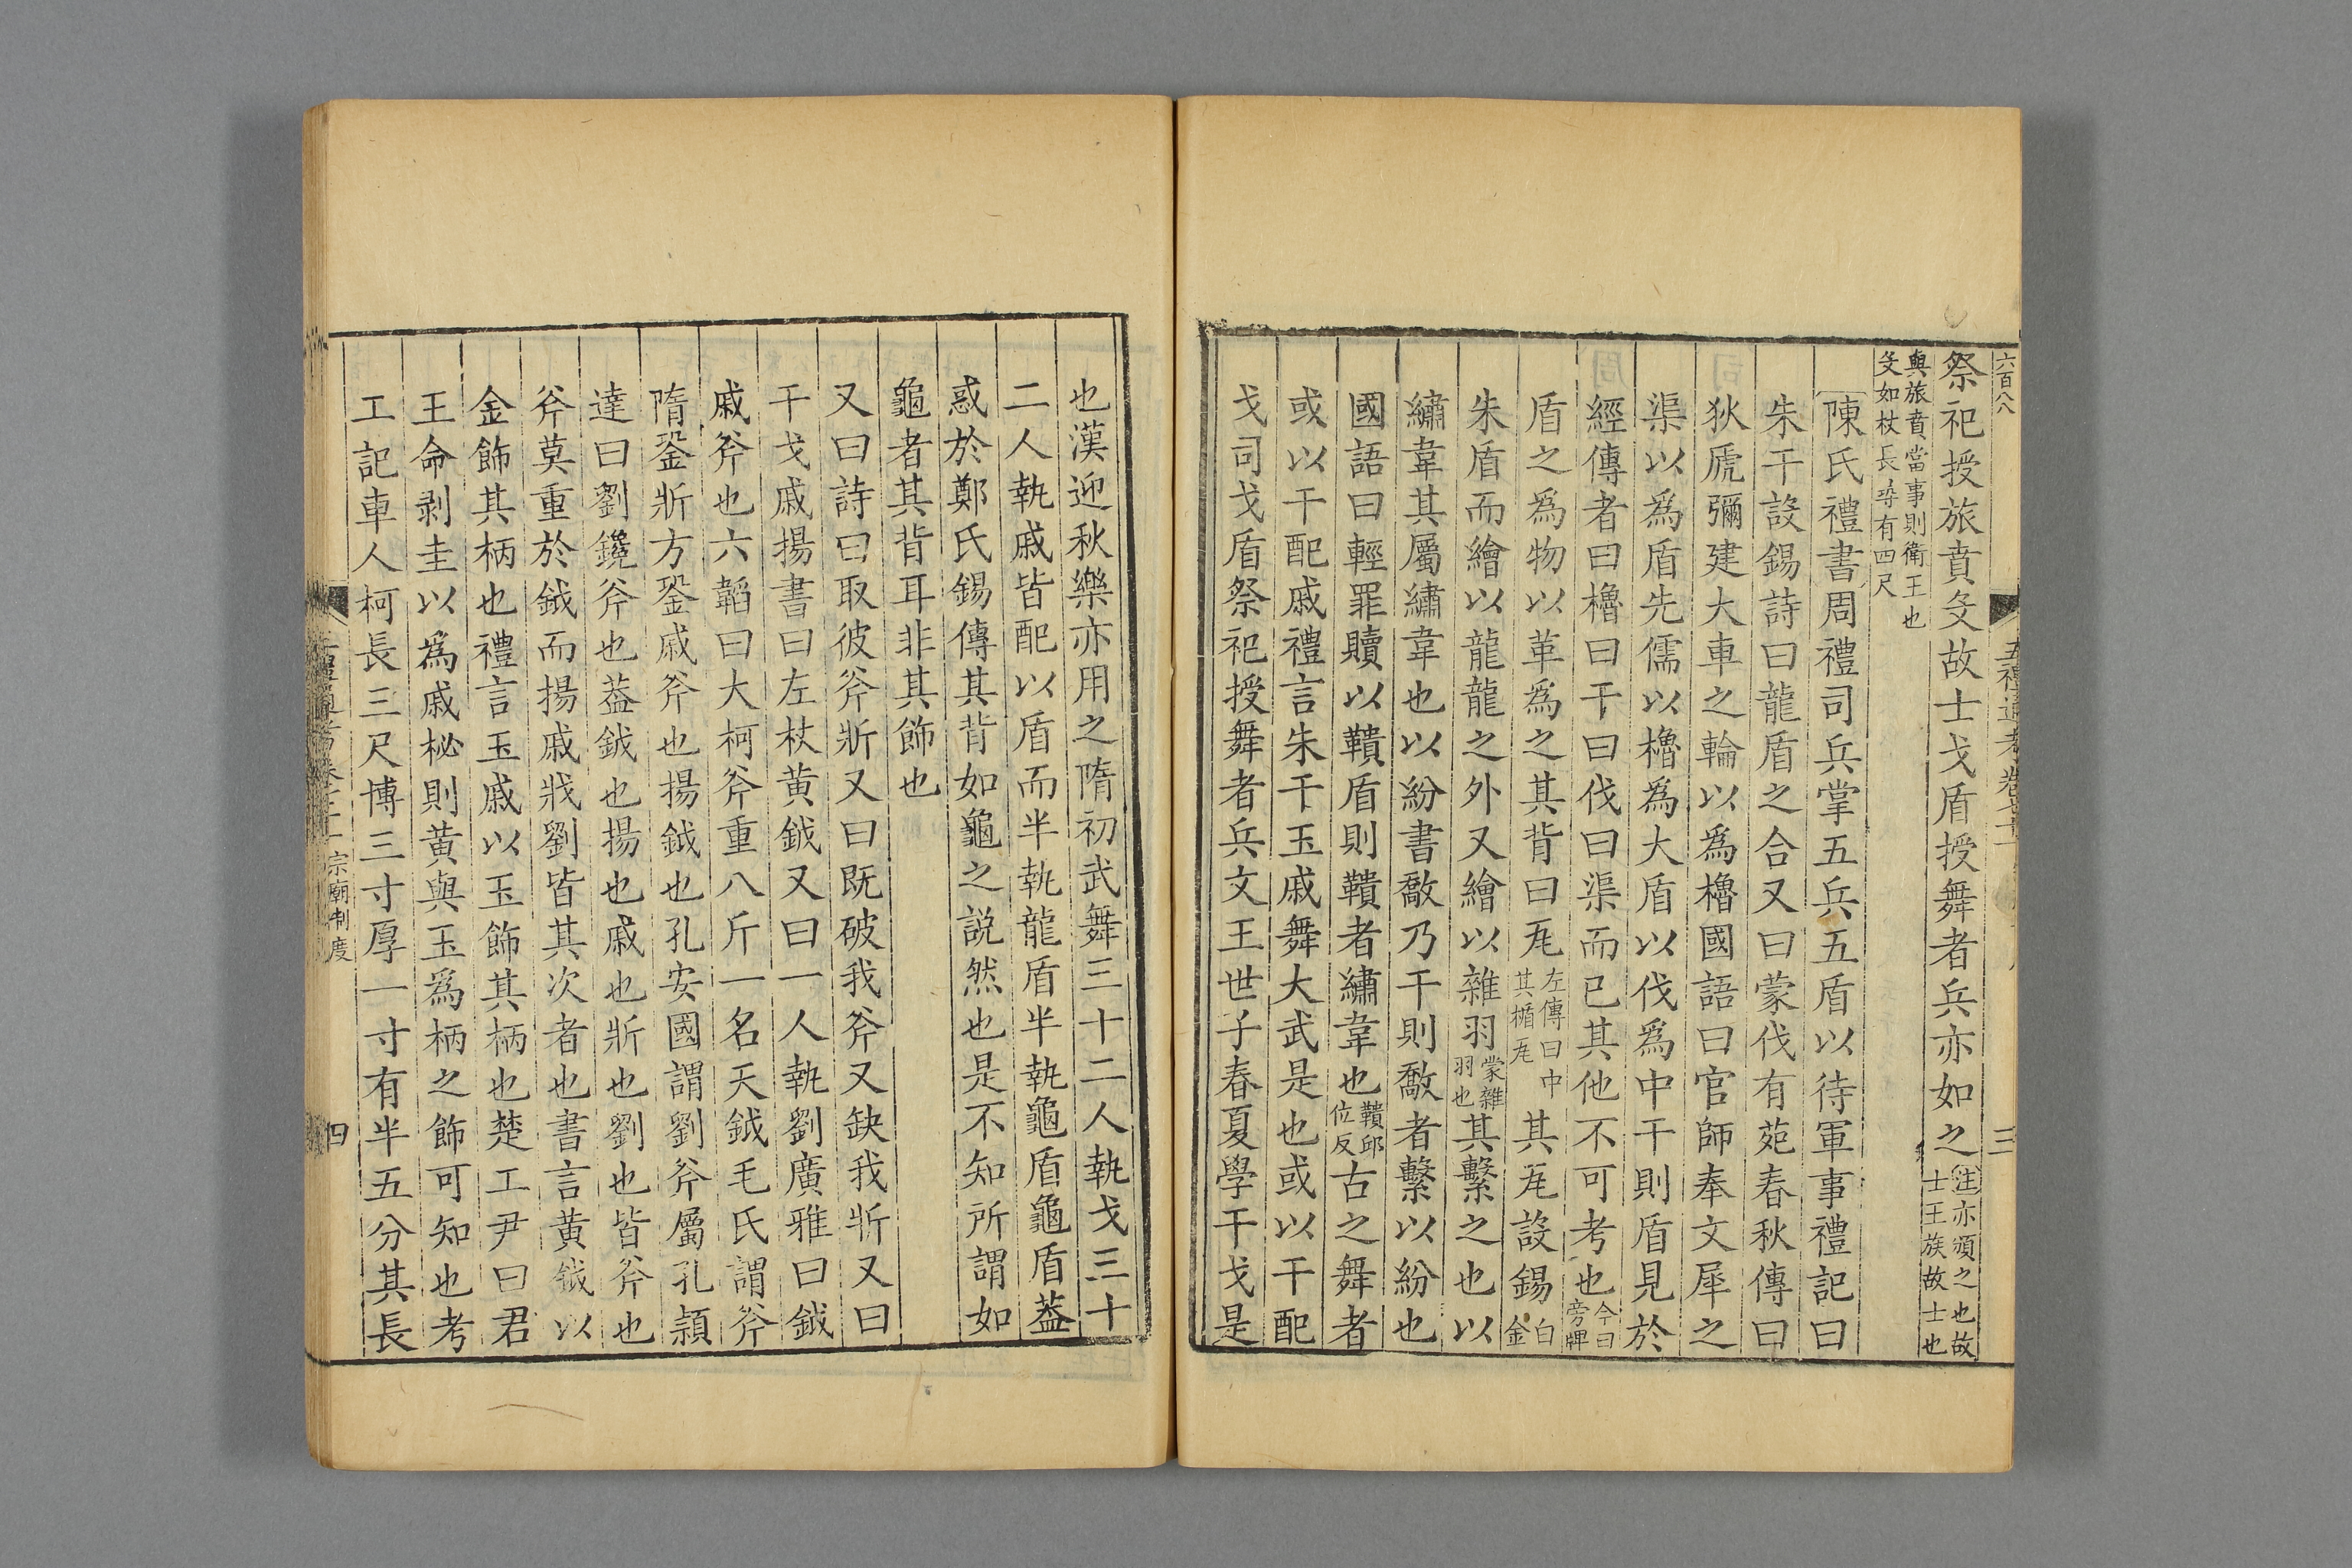 六百八
祭祀授旅賁殳故士戈盾授舞者兵亦如之注亦頒之也故士王族故士也
與旅賁當事則衛王也殳如杖長尋有四尺
陳氏禮書周禮司兵掌五兵五盾以待軍事禮記曰
朱干設錫詩曰龍盾之合又曰蒙伐有苑春秋傳曰
狄虒彌建大車之輪以為櫓國語曰官師奉文犀之
渠以為盾先儒以櫓為大盾以伐為中干則盾見於
經傳者曰櫓曰干曰伐曰渠而已其他不可考也今曰旁牌
盾之為物以革為之其背曰瓦左傳曰中其楯瓦其瓦設錫白金
朱盾而繪以龍龍之外又繪以雜羽蒙雜羽也其繫之也以
繡韋其屬繡韋也以紛書敿乃干則敿者繫以紛也
國語曰輕罪贖以鞼盾則鞼者繡韋也鞼邱位反古之舞者
或以干配戚禮言朱干玉戚舞大武是也或以干配
戈司戈盾祭祀授舞者兵文王世子春夏學干戈是
也漢迎秋樂亦用之隋初武舞三十二人執戈三十
二人執戚皆配以盾而半執龍盾半執龜盾龜盾蓋
惑於鄭氏錫傳其背如龜之説然也是不知所謂如
龜者其背耳非其飾也
又曰詩曰取彼斧斨又曰既破我斧又缺我斨又曰
干戈戚揚書曰左杖黄鉞又曰一人執劉廣雅曰鉞
戚斧也六韜曰大柯斧重八斤一名天鉞毛氏謂斧
隋銎斨方銎戚斧也揚鉞也孔安國謂劉斧屬孔潁
達曰劉鑱斧也蓋鉞也揚也戚也斨也劉也皆斧也
斧莫重於鉞而揚戚戕劉皆其次者也書言黄鉞以
金飾其柄也禮言玉戚以玉飾其柄也楚工尹曰君
王命剥圭以為戚柲則黄與玉為柄之飾可知也考
工記車人柯長三尺博三寸厚一寸有半五分其長
宗廟制度
四